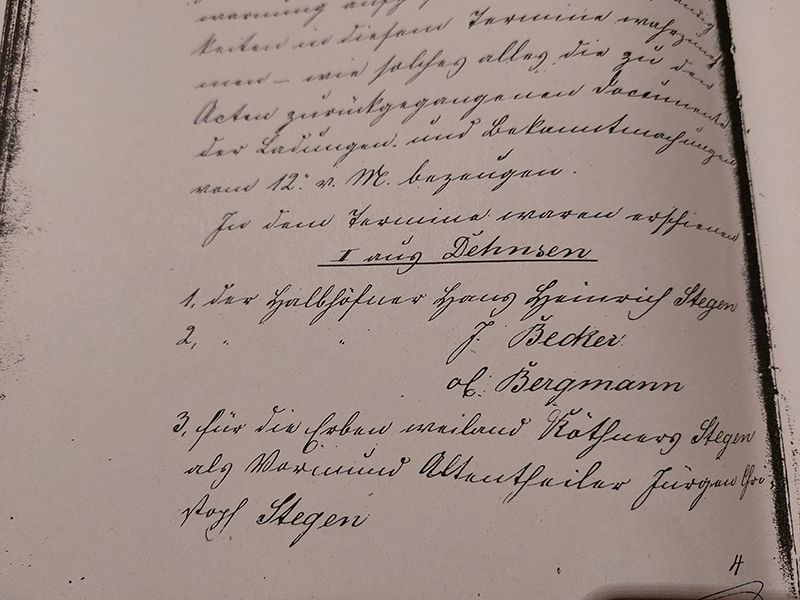 warnung
keiten in diesem Termine wahrzuneh
men – wie solches alles die zu den
Acten zurückgegangenen Documente
der Ladungen und Bekanntmachungen
vom 12. v. M. bezeugen.
In dem Termine waren erschienen
I aus Dehnsen
1, der Halbhöfner Hans Heinrich Stegen
2, " " J. Becker
ol. Bergmann
3, für die Erben weiland Köthners Stegen
als Vormund Altentheiler Jürgen Chri-
stoph Stegen
4